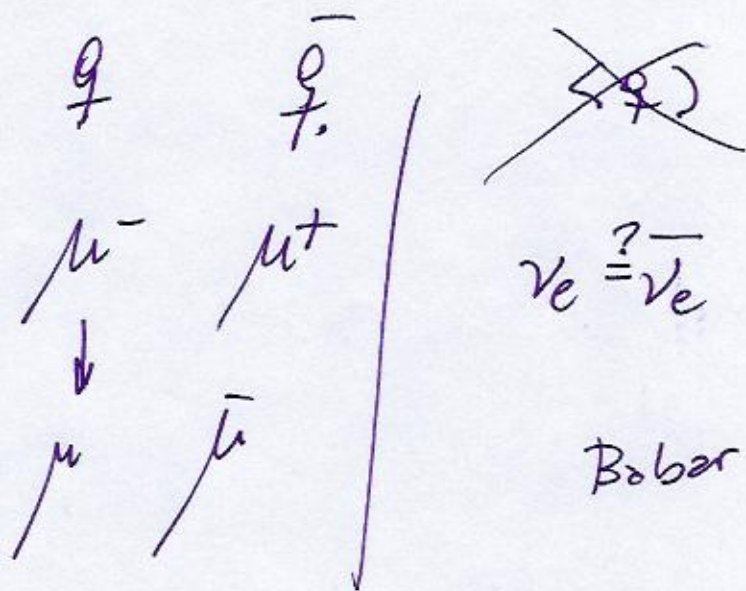 q q̄
μ⁻ μ⁺
↓
μ μ̄
(q)
νₑ ≟ ν̄ₑ
Babar